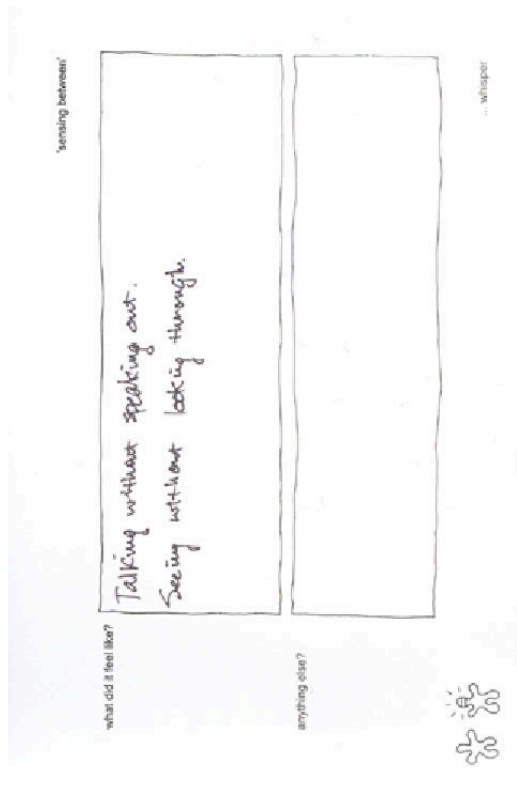 'sensing between'
what did it feel like?
Talking without speaking out.
Seeing without looking through.
anything else?
... whisper